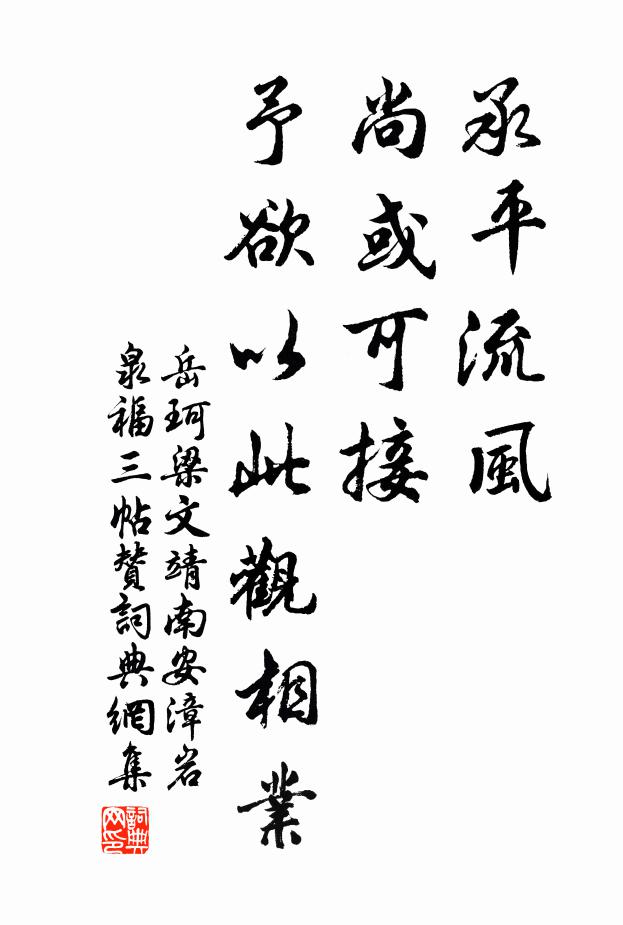 承平流風
尚或可接
予欲以此觀相業
岳珂梁文靖南安漳岩
泉福三帖贊詞典網集
詞典網印